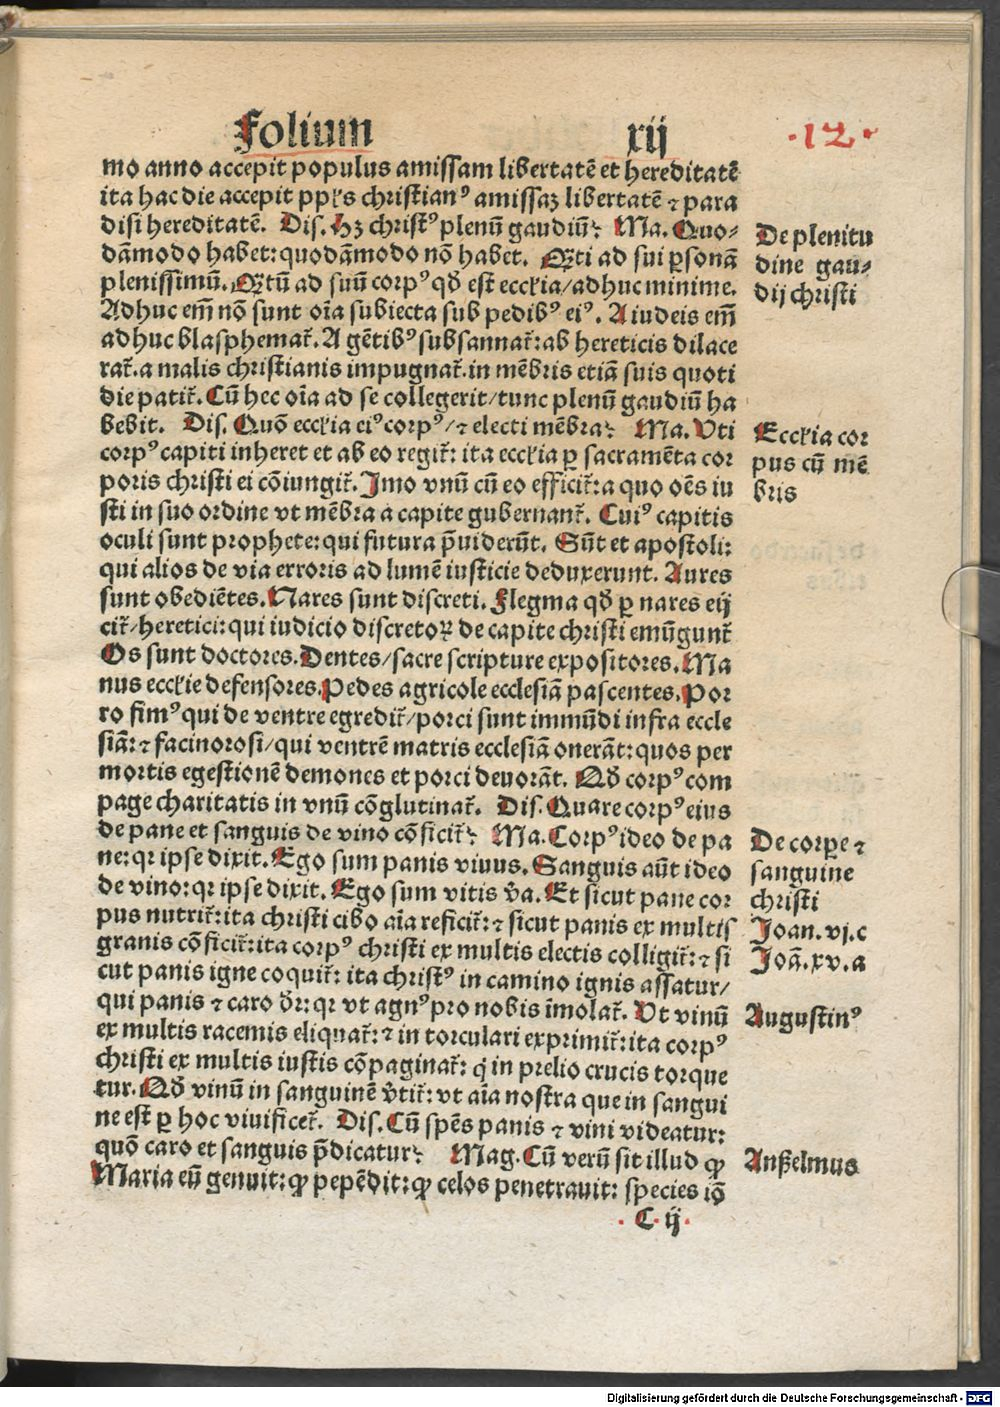 Folium xij ·12·
mo anno accepit populus amissam libertatē et hereditatē
ita hac die accepit ppl's christianꝰ amissaꝫ libertatē ⁊ para
disi hereditatē. Dis. Hꝫ christꝰ plenū gaudiū? Ma. Quo-
dāmodo habet: quodāmodo nō habet. Q̄ti ad sui ꝑsonā
plenissimū. Q̄tū ad suū corpꝰ qđ est eccl'ia/adhuc minime.
Adhuc em̄ nō sunt oīa subiecta sub pedibꝰ eiꝰ. A iudeis em̄
adhuc blasphemat᷑. A gētibꝰ subsannat᷑: ab hereticis dilace
rat᷑. a malis christianis impugnat᷑. in mēbris etiā suis quoti
die patit᷑. Cū hec oīa ad se collegerit/tunc plenū gaudiū ha
bebit. Dis. Quō eccl'ia eiꝰ corpꝰ/⁊ electi mēbra? Ma. Vti
corpꝰ capiti inheret et ab eo regit᷑: ita eccl'ia ꝑ sacramēta cor
poris christi ei cōiungit᷑. Imo vnū cū eo efficit᷑: a quo oēs iu
sti in suo ordine vt mēbra a capite gubernant᷑. Cuiꝰ capitis
oculi sunt prophete: qui futura p̄uiderūt. Sūt et apostoli:
qui alios de via erroris ad lumē iusticie deduxerunt. Aures
sunt obediētes. Nares sunt discreti. Flegma qđ ꝑ nares eij
cit᷑/heretici: qui iudicio discretoꝝ de capite christi emūgunt᷑
Os sunt doctores. Dentes/sacre scripture expositores. Ma
nus eccl'ie defensores. Pedes agricole ecclesiā pascentes. Por
ro fimꝰ qui de ventre egredit᷑/porci sunt immūdi infra eccle
siā: ⁊ facinorosi/qui ventrē matris ecclesiā onerāt: quos per
mortis egestionē demones et porci deuorāt. Qđ corpꝰ com
page charitatis in vnū cōglutinat᷑. Dis. Quare corpꝰ eius
de pane et sanguis de vino cōficit᷑? Ma. Corpꝰ ideo de pa
ne: qr ipse dixit. Ego sum panis viuus. Sanguis aūt ideo
de vino: qr ipse dixit. Ego sum vitis v̄a. Et sicut pane cor
pus nutrit᷑: ita christi cibo aīa reficit᷑: ⁊ sicut panis ex multis
granis cōficit᷑: ita corpꝰ christi ex multis electis colligit᷑: ⁊ si
cut panis igne coquit᷑: ita christꝰ in camino ignis assatur/
qui panis ⁊ caro dr̄: qr vt agnꝰ pro nobis īmolat᷑. Vt vinū
ex multis racemis eliquat᷑: ⁊ in torculari exprimit᷑: ita corpꝰ
christi ex multis iustis cōpaginat᷑: q̇ in prelio crucis torque
tur. Qđ vinū in sanguinē v̄tit᷑: vt aīa nostra que in sangui
ne est ꝑ hoc viuificet᷑. Dis. Cū spēs panis ⁊ vini videatur:
quō caro et sanguis p̄dicatur? Mag. Cū verū sit illud ꝙ
Maria eū genuit: ꝙ pepēdit: ꝙ celos penetrauit: species iō
· C · ij ·
De plenitu
dine gau-
dij christi
Eccl'ia cor
pus cū mē
bris
De corpe ⁊
sanguine
christi
Joan. vj. c
Joā. xv. a
Augustinꝰ
Anßelmus
Digitalisierung gefördert durch die Deutsche Forschungsgemeinschaft - DFG